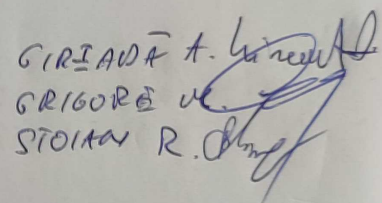 GIRIADĂ A.
GRIGORE M.
STOIAN R.